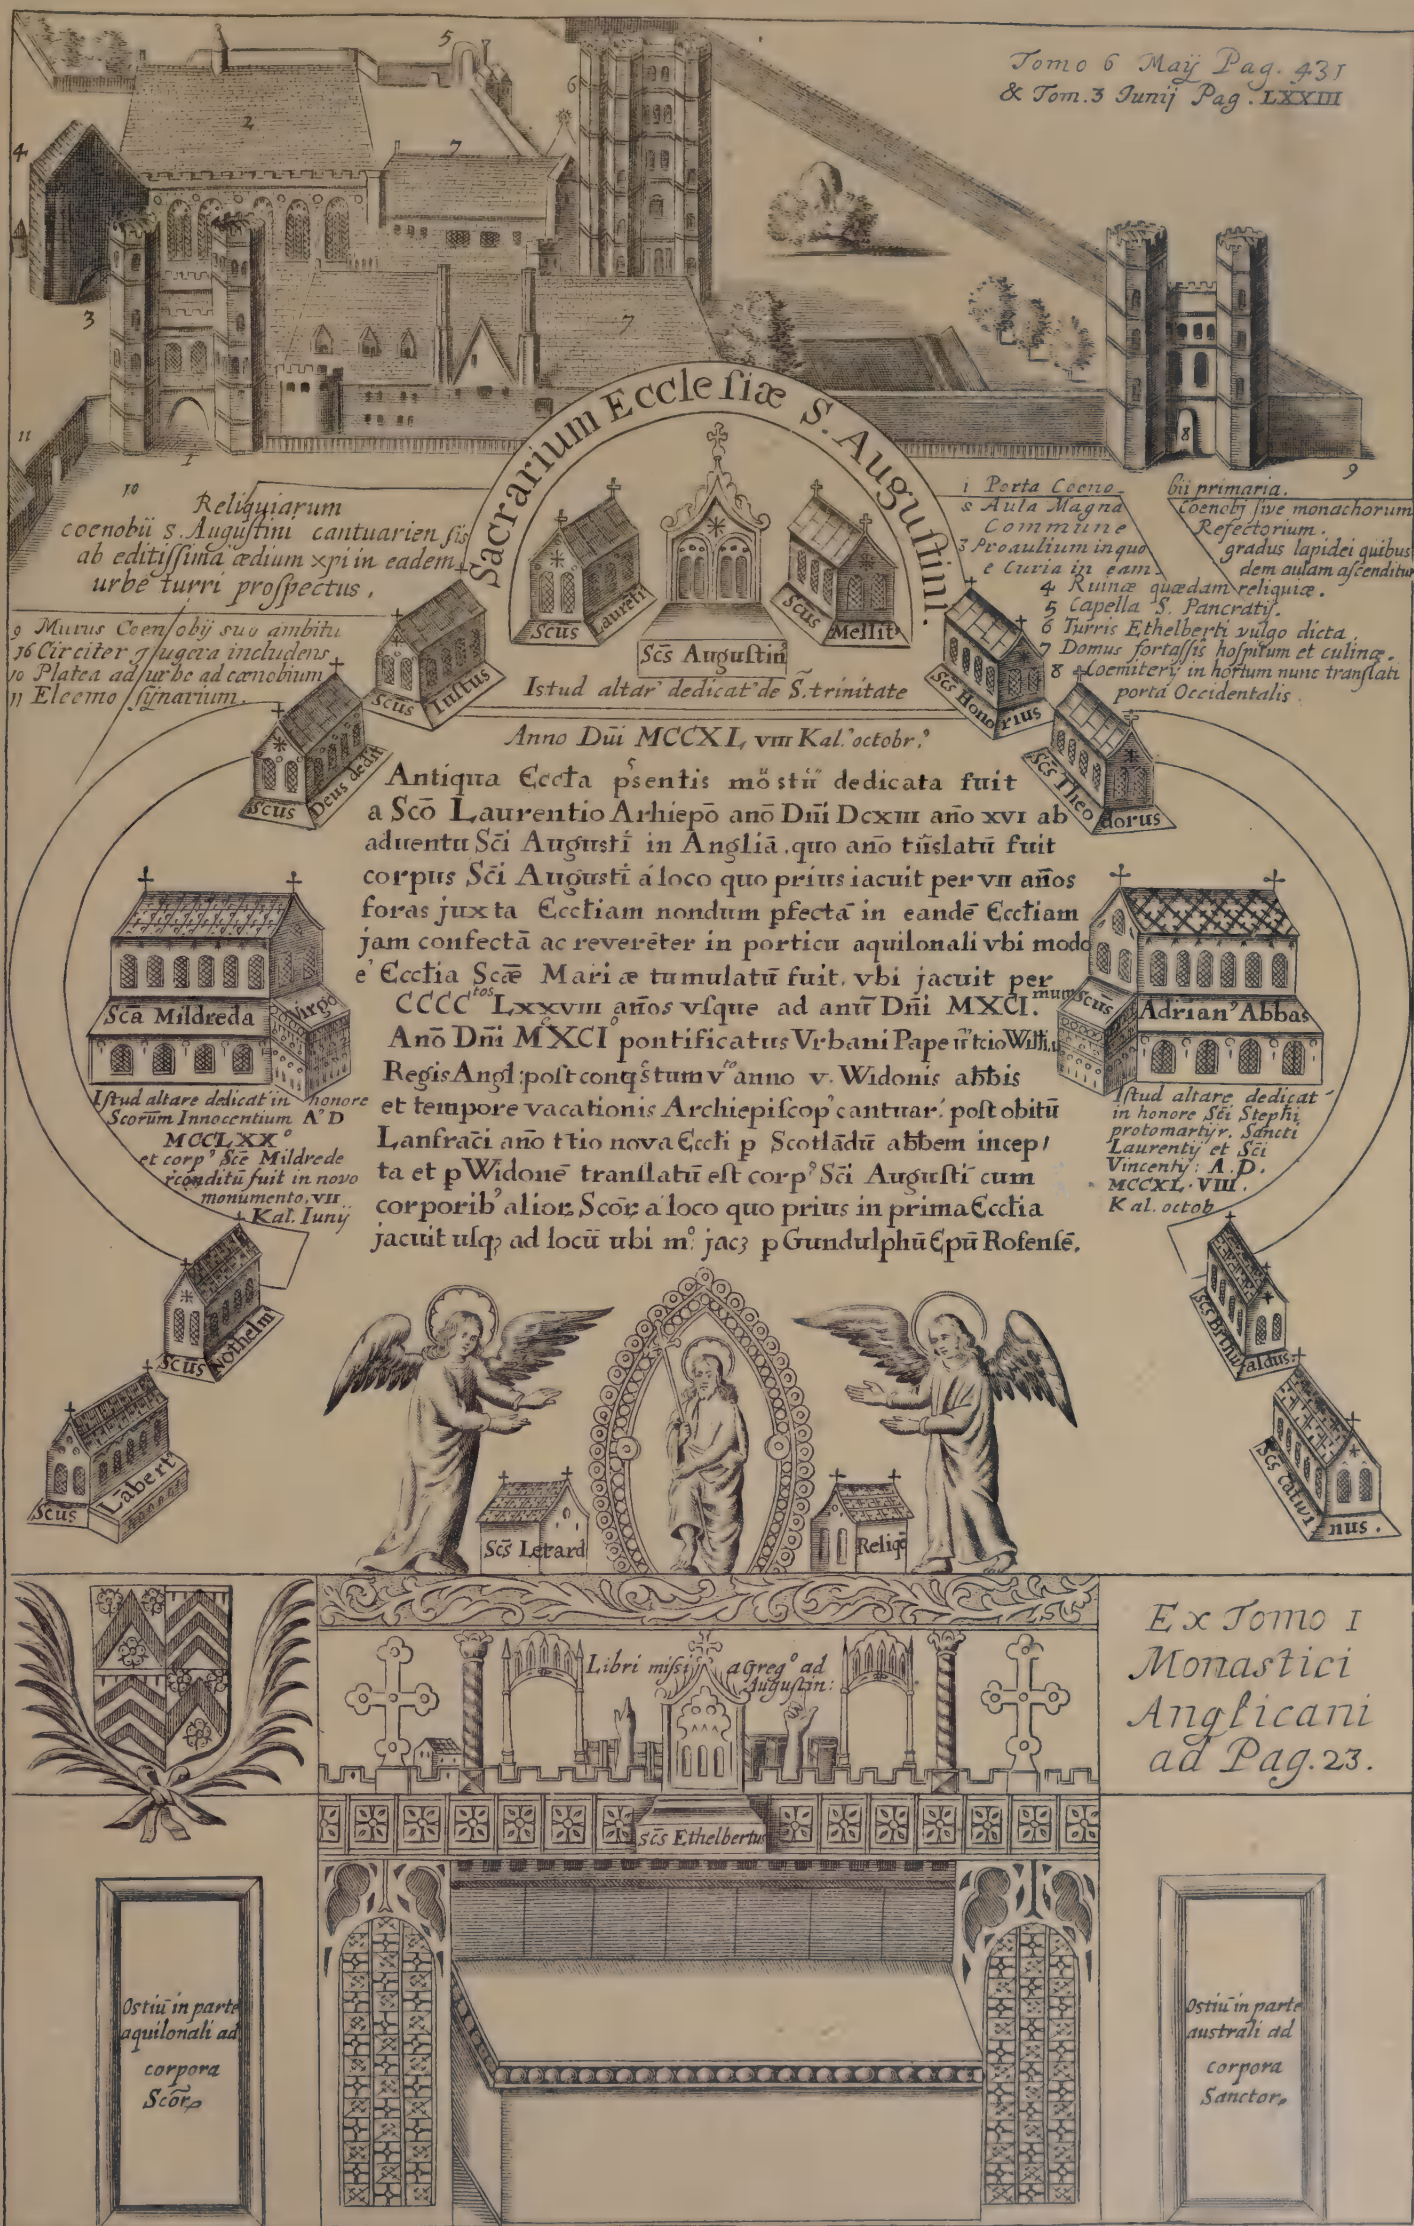 Tomo 6 Maÿ Pag. 431
& Tom. 3 Iunij Pag. LXXIII
5
6
2
4
7
3
7
11
1
8
9
10
Reliquiarum
coenobii s. Auguſtini cantuarienſis
ab editiſſima ædium xpi in eadem
urbe turri proſpectus.
9 Murus Coenobij suo ambitu
16 Circiter jugera includens
10 Platea ad urbe ad cœnobium
11 Eleemoſÿnarium.
1 Porta Coenobii primaria.
2 Aula Magna Coenobij ſive monachorum
Commune Refectorium.
3 Proaulium in quo gradus lapidei quibus
e Curia in eamdem aulam aſcenditur
4 Ruinæ quædam reliquiæ.
5 Capella S. Pancratij.
6 Turris Ethelberti vulgo dicta
7 Domus fortaſſis hoſpitum et culinæ.
8 Coemiterij in hortum nunc tranſlati
porta Occidentalis.
Sacrarium Eccleſiæ S. Auguſtini.
Scūs Laurēti
Scūs Mellitꝰ
Scs̄ Auguſtinꝰ
Istud altarʼ dedicatʼ de S̃. trinitate
Scūs Iuſtus
Scs̄ Honorius
Scūs Deus dedit
Scs̄ Theodorus
Anno Dn̄i MCCXL, VIII Kal. octobr.ꝰ
Antiqua Eccťa pſ̾entis mo̎stīi dedicata fuit
a Scō Laurentio Arhiepō anō Dn̄i DCXIII an̄o XVI ab
aduentu Sc̄i Auguſti̾ in Angliā, quo an̄o tn̄slatū fuit
corpus Sc̄i Auguſti̾ á loco quo prius iacuit per VII an̄os
foras juxta Eccťiam nondum pfectā in eandē Eccťiam
jam confectā ac reverēter in porticu aquilonali vbi modo
e' Eccťia Scǣ Mariæ tumulatū fuit, vbi jacuit per
CCCCᵗᵒˢ LXXVIII an̄os vſque ad anū Dn̄i MXCI.ᵐᵘᵐ
An̄o Dn̄i M̊XCI̊ pontificatus Vrbani Pape
Regis Angl: poſt conqſ̾tum vᵗᵒ anno v. Widonis abb̄is
et tempore vacationis Archiepiſcopꝰ cantuar: poſt obitū
Lanfrāci an̄o ttio nova Eccťi p Scotlādū abb̄em incep/
ta et p Widonē tranſlatū eſt corpꝰ Sc̄i Auguſti̾ cum
corporibꝰ alioꝝ Scōꝝ a loco quo prius in prima Eccťia
jacuit uſqꝫ ad locū ubi mͦ: jacꝫ p Gundulphū Epū Roſenſē.
Scā Mildreda Virgo
Iſtud altare dedicatʼ in honore
Scorūm Innocentium Aͦ D
MCCLXXͦ
et corpꝰ Scē Mildrede
rconditū fuit in novo
monumento, VII
Kal. Iunij
Scūs Adrianꝰ Abbas
Iſtud altare dedicatʼ
in honore Sc̄i Steph̄i
protomartÿr. Sancti
Laurentÿ et Sc̄i
Vincentÿ: A.D.
MCCXL.VIII.
Kal. octob
Scūs Nothelm
Scs̄ Brituualdus.
Scūs Lābertꝰ
Scs̄ Tatwinus.
Scs̄ Letard
Reliqē
Libri miſſi a Gregͦ ad
Auguſtin:
Ex Tomo I
Monastici
Anglicani
ad Pag. 23.
scs̄ Ethelbertus
Ostiū in parte
aquilonali ad
corpora
Scōrꝝ
Ostiū in parte
australi ad
corpora
Sanctorꝝ